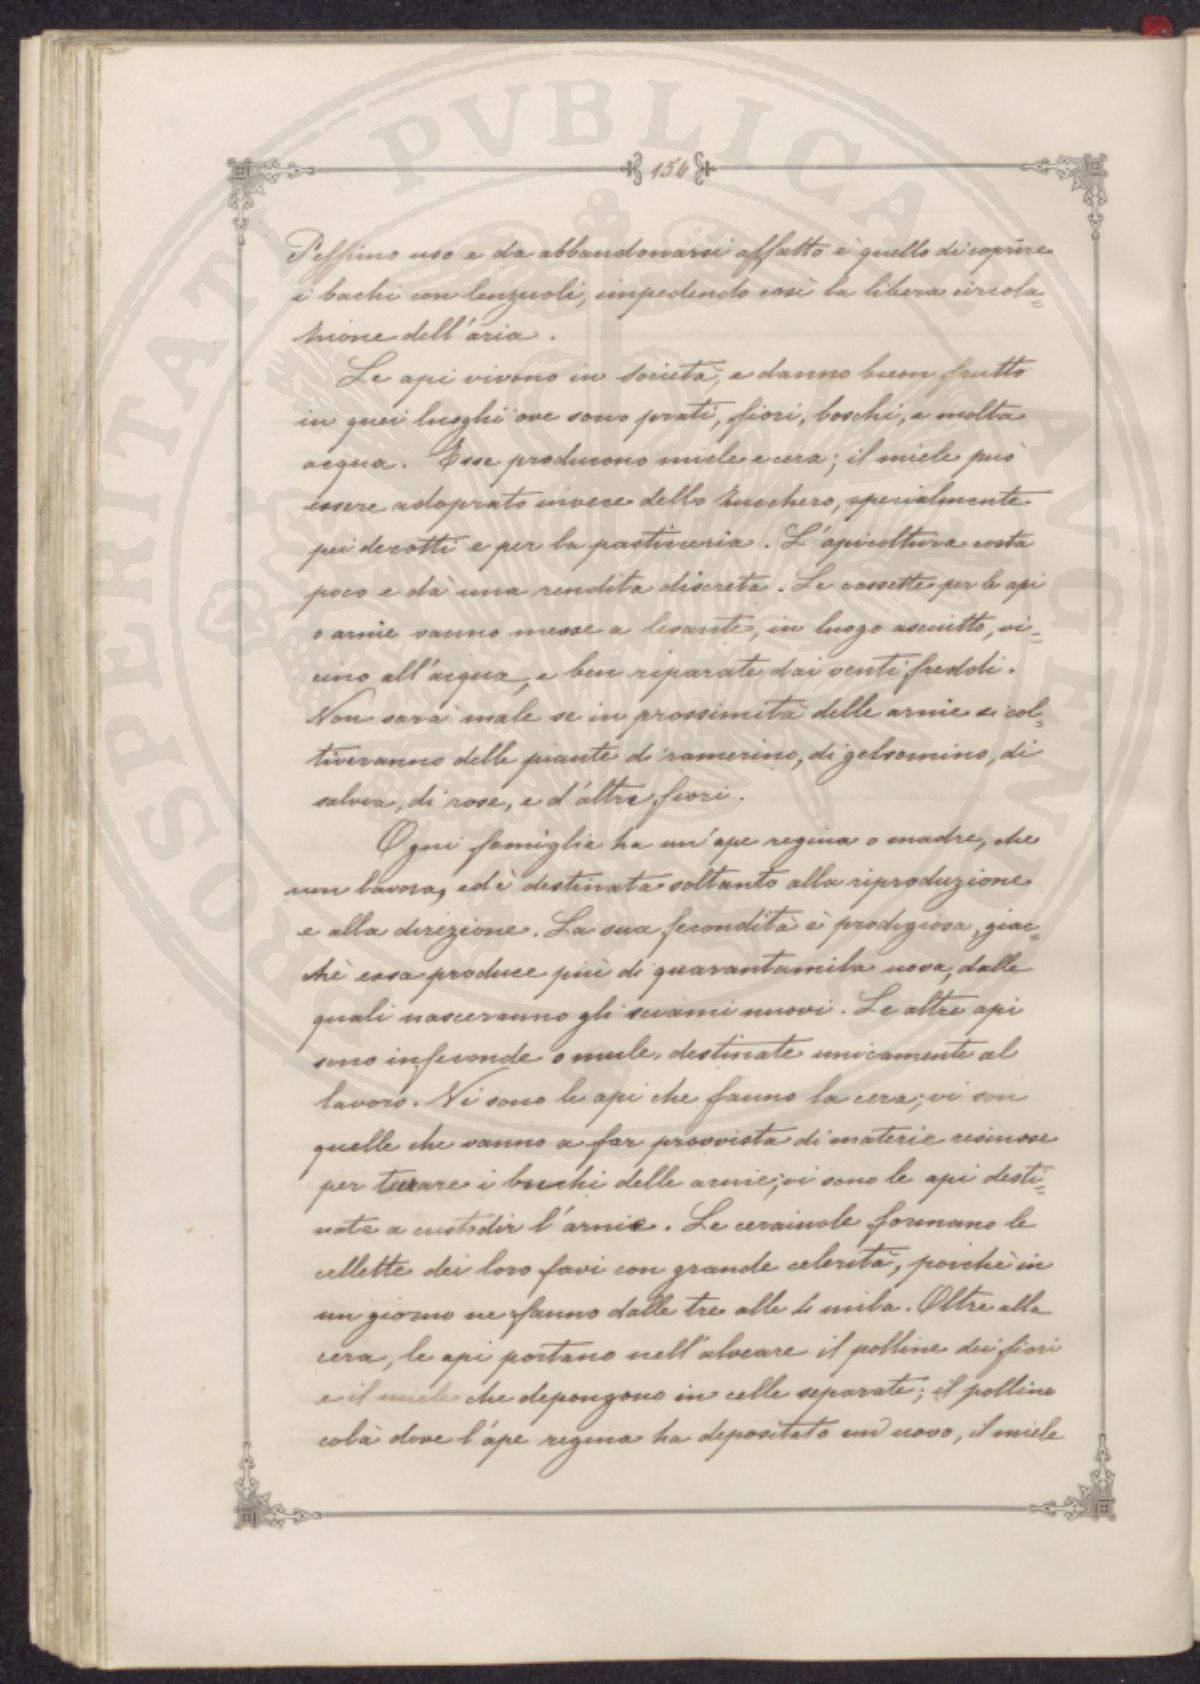 PROSPERITATI PVBLICAE AVGENDAE
156
Pessimo uso e da abbandonarsi affatto è quello di coprire
i bachi con lenzuoli, impedendo così la libera circola=
zione dell'aria.
Le api vivono in società, e danno buon frutto
in quei luoghi ove sono prati, fiori, boschi, e molta
acqua. Esse producono miele e cera; il miele può
essere adoprato invece dello zucchero, specialmente
pei decotti e per la pasticceria. L'apicoltura costa
poco e dà una rendita discreta. Le cassette per le api
o arnie vanno messe a levante, in luogo asciutto, vi=
cino all'acqua, e ben riparate dai venti freddi.
Non sarà male se in prossimità delle arnie si col=
tiveranno delle piante di ramerino, di gelsomino, di
salvia, di rose, e d'altri fiori.
Ogni famiglia ha un'ape regina o madre, che
non lavora, ed è destinata soltanto alla riproduzione
e alla direzione. La sua fecondità è prodigiosa, giac=
chè essa produce più di quarantamila uova, dalle
quali nasceranno gli sciami nuovi. Le altre api
sono infeconde o mule, destinate unicamente al
lavoro. Vi sono le api che fanno la cera; vi son
quelle che vanno a far provvista di materie resinose
per turare i buchi delle arnie; vi sono le api desti=
nate a custodir l'arnie. Le ceraiuole formano le
cellette dei loro favi con grande celerità, poichè in
un giorno ne fanno dalle tre alle 4 mila. Oltre alla
cera, le api portano nell'alveare il polline dei fiori
e il miele che depongono in celle separate; il polline
colà dove l'ape regina ha depositato un uovo, il miele